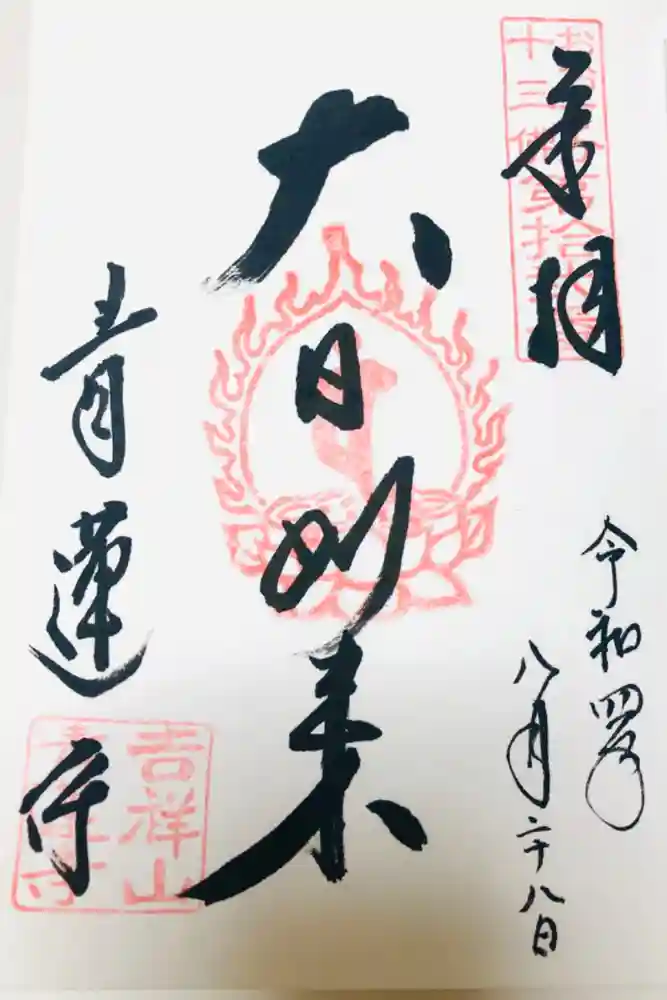 奉拝
十三佛第拾
令和四年
八月二十八日
大日如来
青蓮寺
吉祥山
青蓮寺